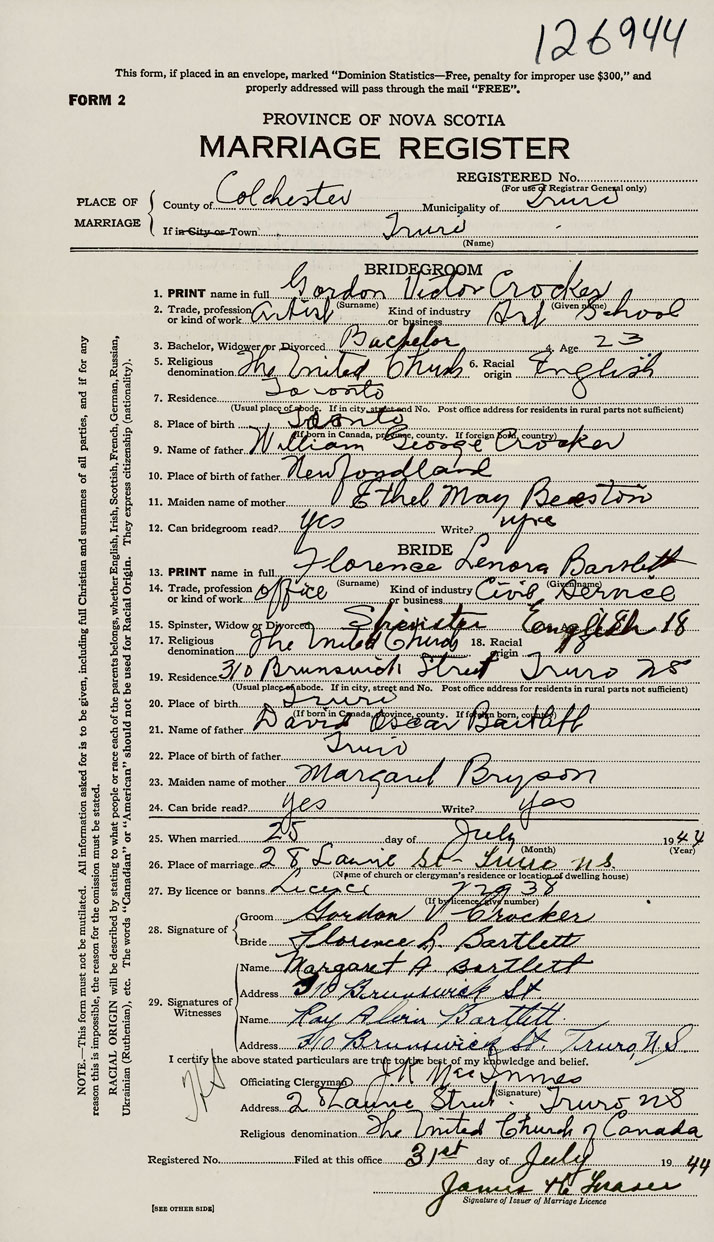 126944
This form, if placed in an envelope, marked "Dominion Statistics—Free, penalty for improper use $300," and
properly addressed will pass through the mail "FREE".
FORM 2
PROVINCE OF NOVA SCOTIA
MARRIAGE REGISTER
REGISTERED No.
(For use of Registrar General only)
PLACE OF MARRIAGE
County of Colchester Municipality of Truro
If in City or Town Truro
(Name)
BRIDEGROOM
1. PRINT name in full Gordon Victor Crocker
(Surname) (Given name)
2. Trade, profession or kind of work Artist Kind of industry or business Art School
3. Bachelor, Widower or Divorced Bachelor 4. Age 23
5. Religious denomination The United Church 6. Racial origin English
7. Residence Toronto
(Usual place of abode. If in city, street and No. Post office address for residents in rural parts not sufficient)
8. Place of birth Toronto
(If born in Canada, province, county. If foreign born, country)
9. Name of father William George Crocker
10. Place of birth of father Newfoundland
11. Maiden name of mother Ethel May Beeston
12. Can bridegroom read? yes Write? yes
BRIDE
13. PRINT name in full Florence Lenora Bartlett
(Surname) (Given name)
14. Trade, profession or kind of work office Kind of industry or business Civil Service
15. Spinster, Widow or Divorced Spinster 18
17. Religious denomination The United Church 18. Racial origin English
19. Residence 310 Brunswick Street Truro NS
(Usual place of abode. If in city, street and No. Post office address for residents in rural parts not sufficient)
20. Place of birth Truro
(If born in Canada, province, county. If foreign born, country)
21. Name of father David Oscar Bartlett
22. Place of birth of father Truro
23. Maiden name of mother Margaret Bryson
24. Can bride read? yes Write? yes
25. When married 25 day of July 1944
(Month) (Year)
26. Place of marriage 28 Laurie St - Truro NS.
(Name of church or clergyman's residence or location of dwelling house)
27. By licence or banns Licence 72938
(If by licence, give number)
28. Signature of
Groom Gordon V Crocker
Bride Florence L. Bartlett
29. Signatures of Witnesses
Name Margaret A Bartlett
Address 310 Brunswick St
Name Ray Alvin Bartlett.
Address 310 Brunswick St Truro, N.S
I certify the above stated particulars are true to the best of my knowledge and belief.
Officiating Clergyman J K MacInnes
(Signature)
Address 2 Laurie Street Truro NS
Religious denomination The United Church of Canada
Registered No. Filed at this office 31st day of July 1944
James
Signature of Issuer of Marriage Licence
[SEE OTHER SIDE]
NOTE.—This form must not be mutilated. All information asked for is to be given, including full Christian and surnames of all parties, and if for any
reason this is impossible, the reason for the omission must be stated.
RACIAL ORIGIN will be described by stating to what people or race each of the parents belongs, whether English, Irish, Scottish, French, German, Russian,
Ukrainian (Ruthenian), etc. The words "Canadian" or "American" should not be used for Racial Origin. They express citizenship (nationality).